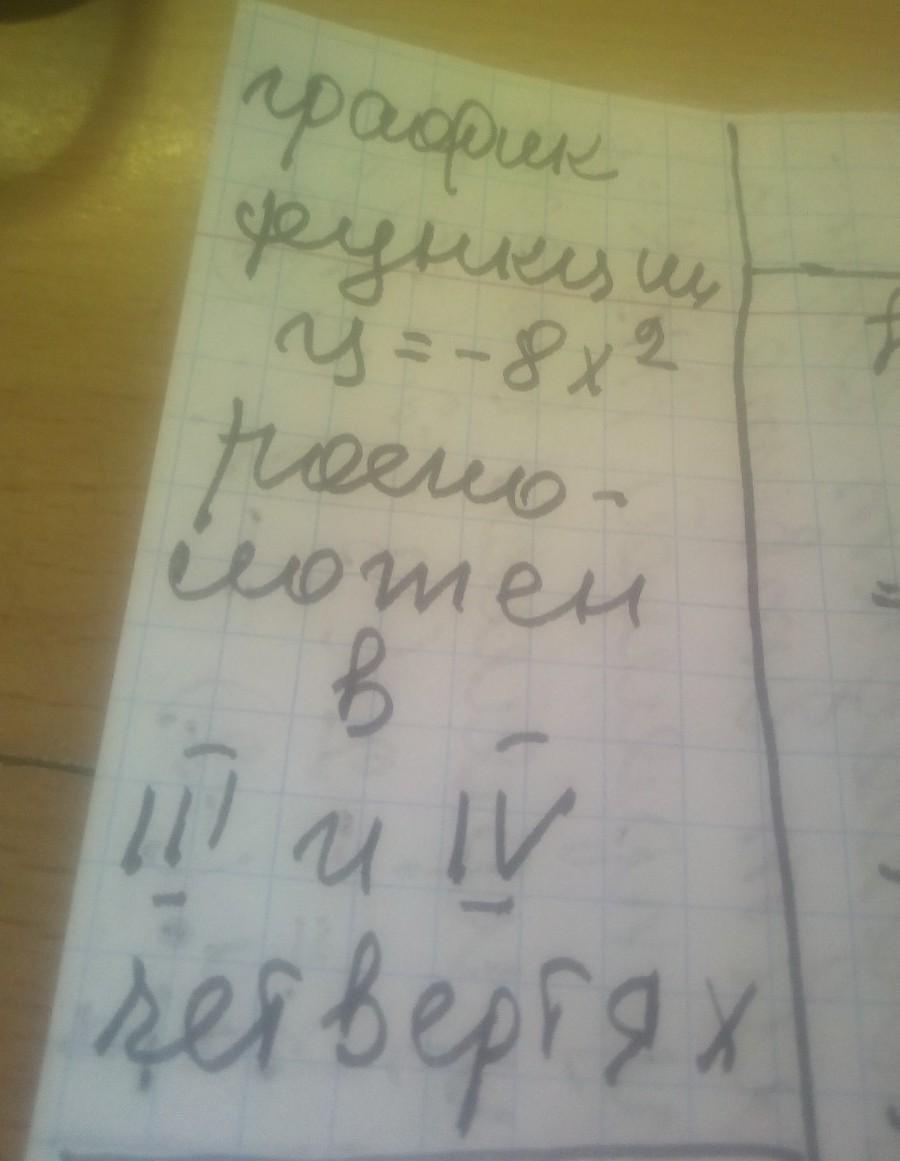 график
функции
y = - 8x²
располо-
ложен
в
III и IV
четвертях